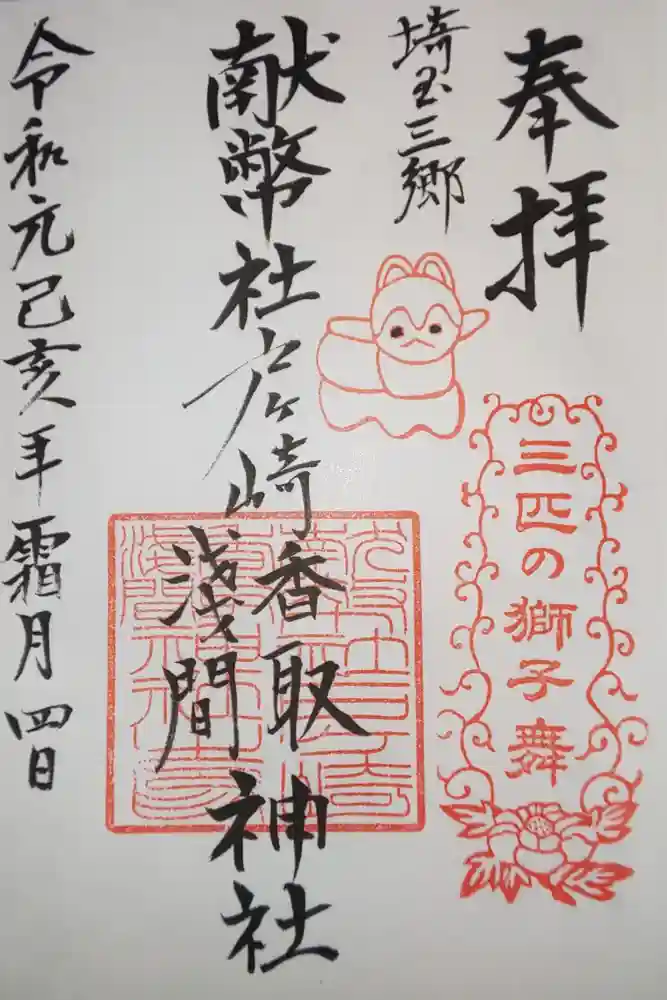 奉拝
埼玉三郷
三匹の獅子舞
献幣社彦ヶ崎香取
浅間
神社
令和元己亥年霜月四日